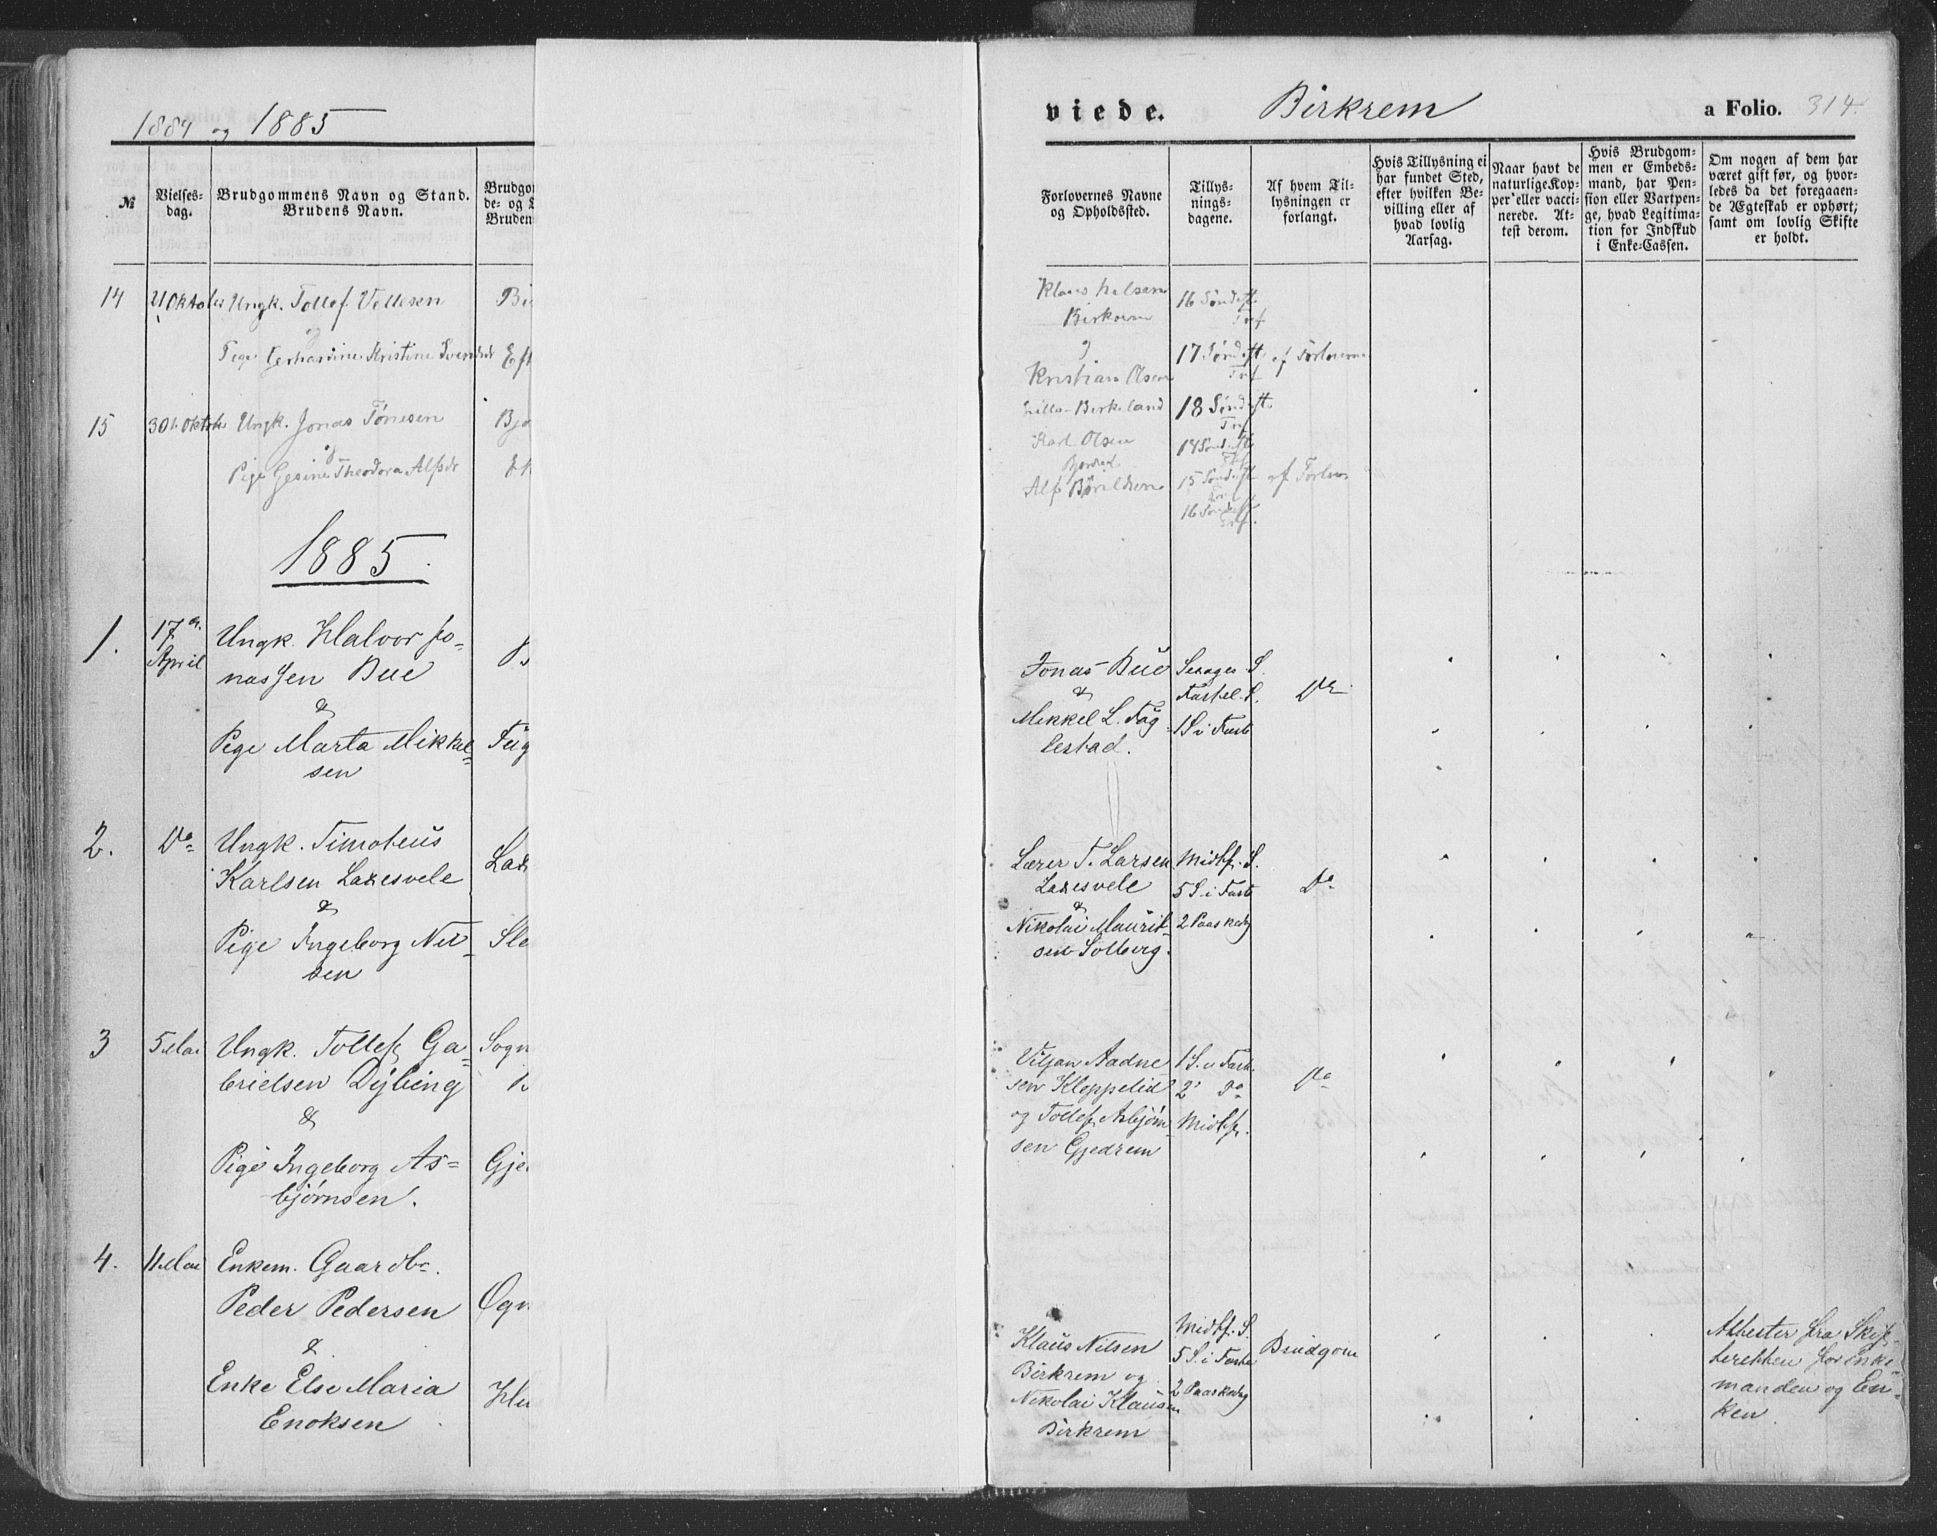 1884 og 1885
№
Vielses-
dag.
Brudgommens Navn og Stand.
Brudens Navn.
Brudgo
de- og
Bruden
14
Ungk. Tollef Vellesen
og
Pige Gerhardine Kristine
15
30te Oktob
Ungk. Jonas Tønesen
og
Pige Gesine Theodora Alfsdr
1885.
1.
17de
April
Ungk. Halvor Jo-
nassen Bue
&
Pige Marta Mikkel-
sen
Fug
2.
Do
Ungk. Timoteus
Karlsen Laxesvele
&
Pige Ingeborg Nil-
sen
Lax
Sle
3
5 Mai
Ungk. Tollef Ga-
brielsen Dybing
&
Pige Ingeborg As-
bjørnsen.
Sogn
Gje
4.
11 Mai
Enkem. Gaardbr.
Peder Pedersen
&
Enke Else Maria
Enoksen
Ogn
viede.
Birkrem
a Folio. 314
Forlovernes Navne
og Opholdssted.
Tillys-
nings-
dagene.
Af hvem Til-
lysningen er
forlangt.
Hvis Tillysning ei
har fundet Sted,
efter hvilken Be-
villing eller af
hvad lovlig
Aarsag.
Naar havt de
naturlige Kop-
per eller vacci-
nerede. At-
test derom.
Hvis Brudgom-
men er Embeds-
mand, har Pen-
sion eller Vartpen-
ge, hvad Legitima-
tion for Indskud
i Enke-Cassen.
Om nogen af dem har
været gift før, og hvor-
ledes da det foregaaen-
de Ægteskab er ophørt;
samt om lovlig Skifte
er holdt.
Klaus Nilsen
Birkrem
og
Kristian Olsen
Lille-Birkeland
16 Sønd. eft.
Tref
17 Sønd. eft.
Tref
18 Sønd. eft.
Tref
af Forloverne
Karl Olsen
Alf Børildsen
14 Sønd. eft.
Tref
15 Sønd. eft.
Tref
16 Sønd. eft.
Tref.
Jonas Bue
&
Mikkel L. Fug-
lestad.
Sexages. S.
Fastel. S.
1 S. i Faste
Do
Lærer T. Larsen
Laxesvele
&
Nikolai Maurit-
sen Solberg.
Midtf. S.
5 S. i Faste
2 Paaskedag
Do
Viljan Aadne-
sen Kloppelid
og Tollef Asbjørn-
sen Gjedrem
1 S. i Faste
2' Do
Midtf.
Do
Klaus Nilsen
Birkrem og
Nikolai Klausen
Birkrem
Midtf. S.
5 S. i Faste
2 Paaskedag
Brudgom
Attester fra Skif-
teretten for Enke-
manden og En-
ken